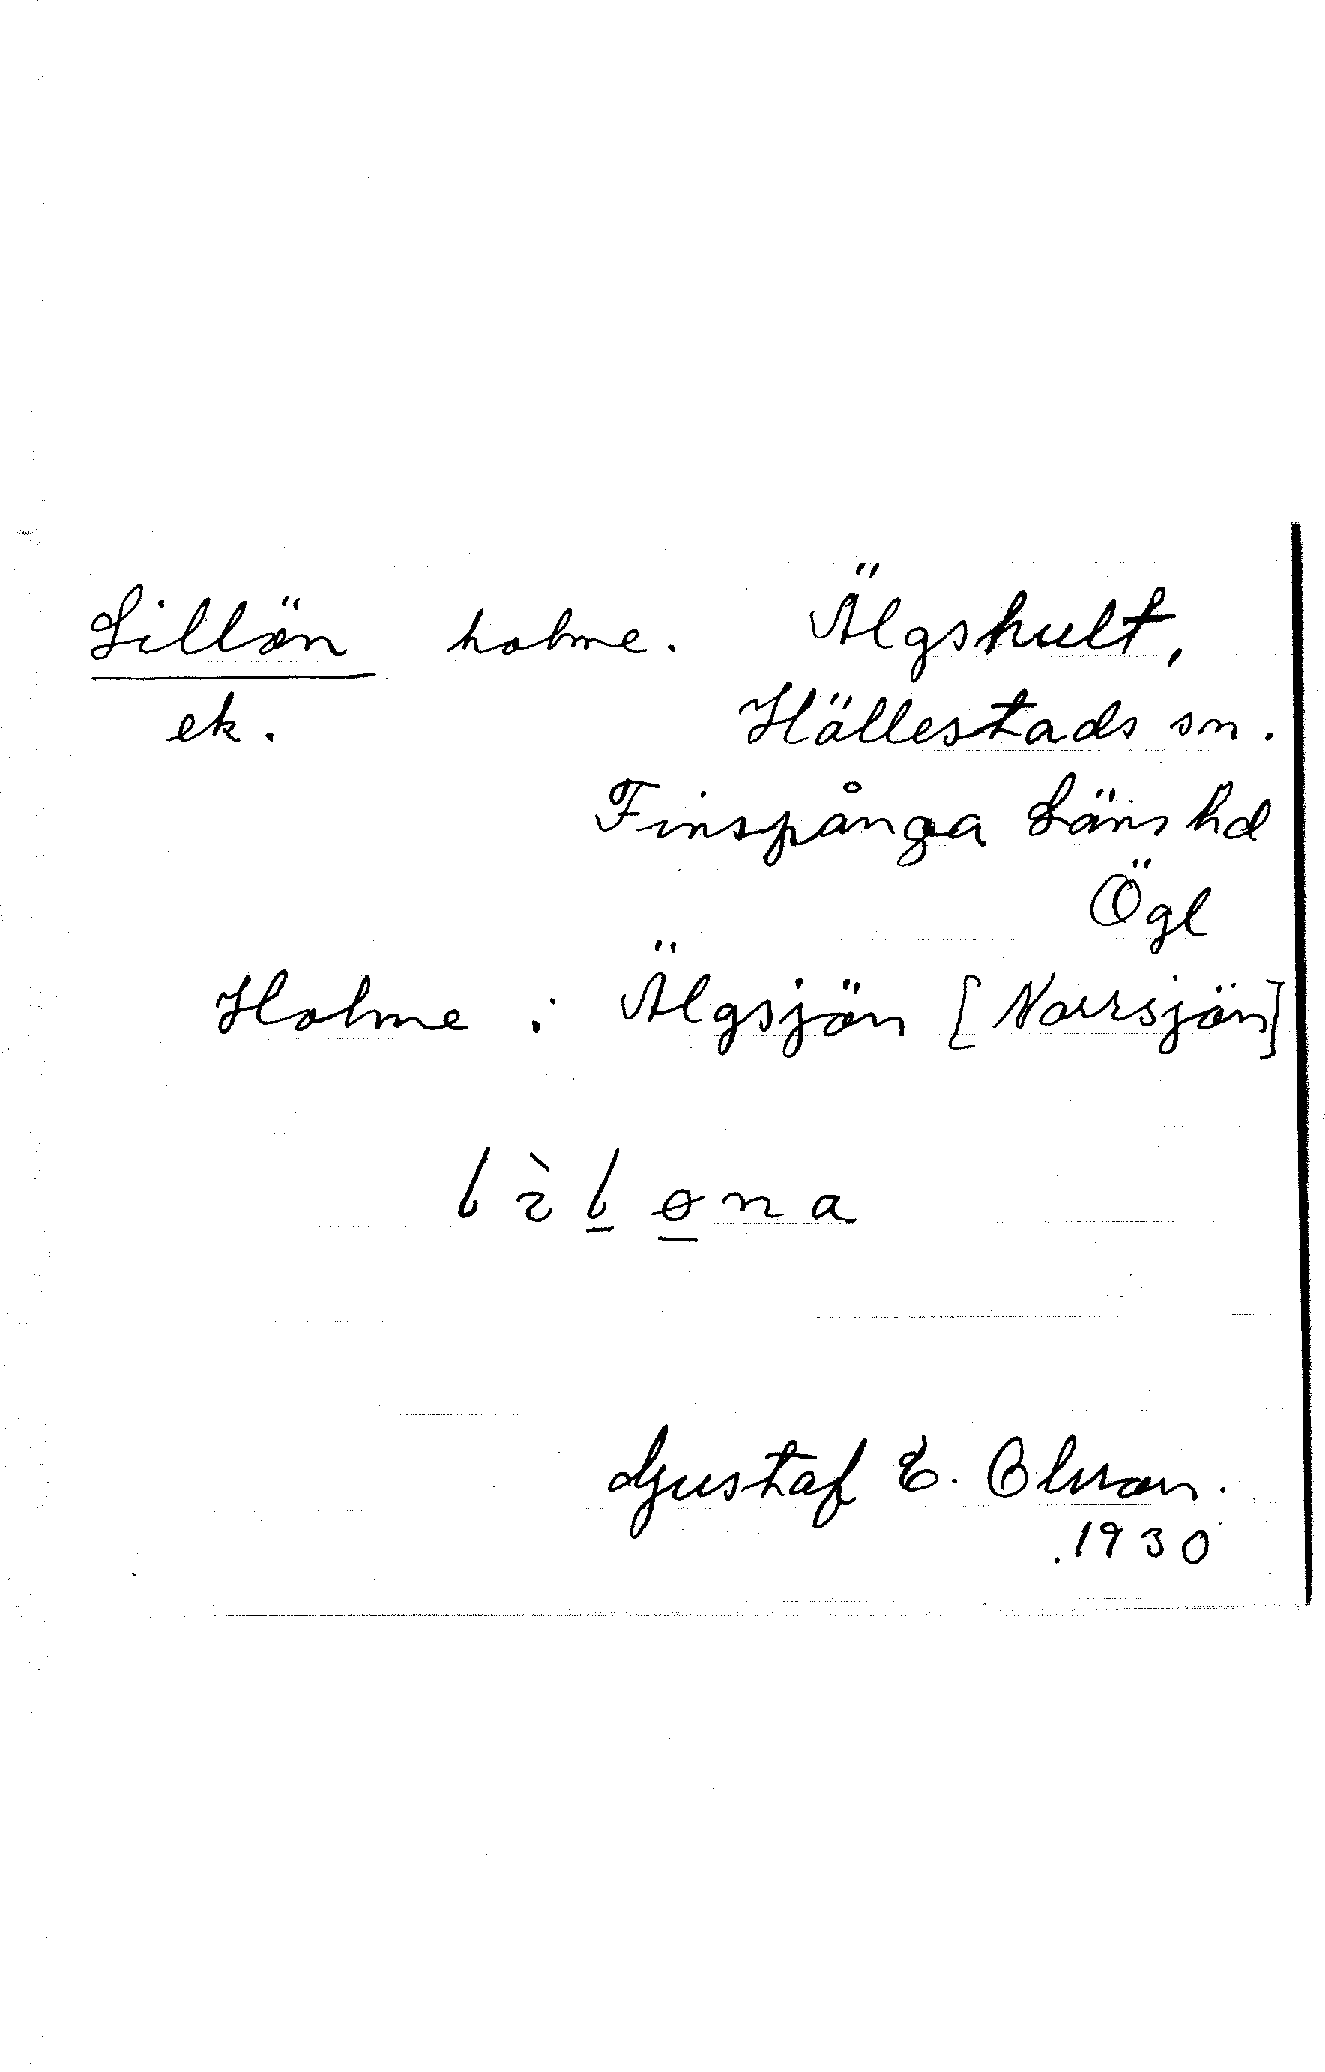 Lillön holme. Älgshult,
ek. Hällestads sn.
Finspånga Läns hd
Ögl
Holme i Älgsjön [Norrsjön]
Gustaf E. Olsson.
1930